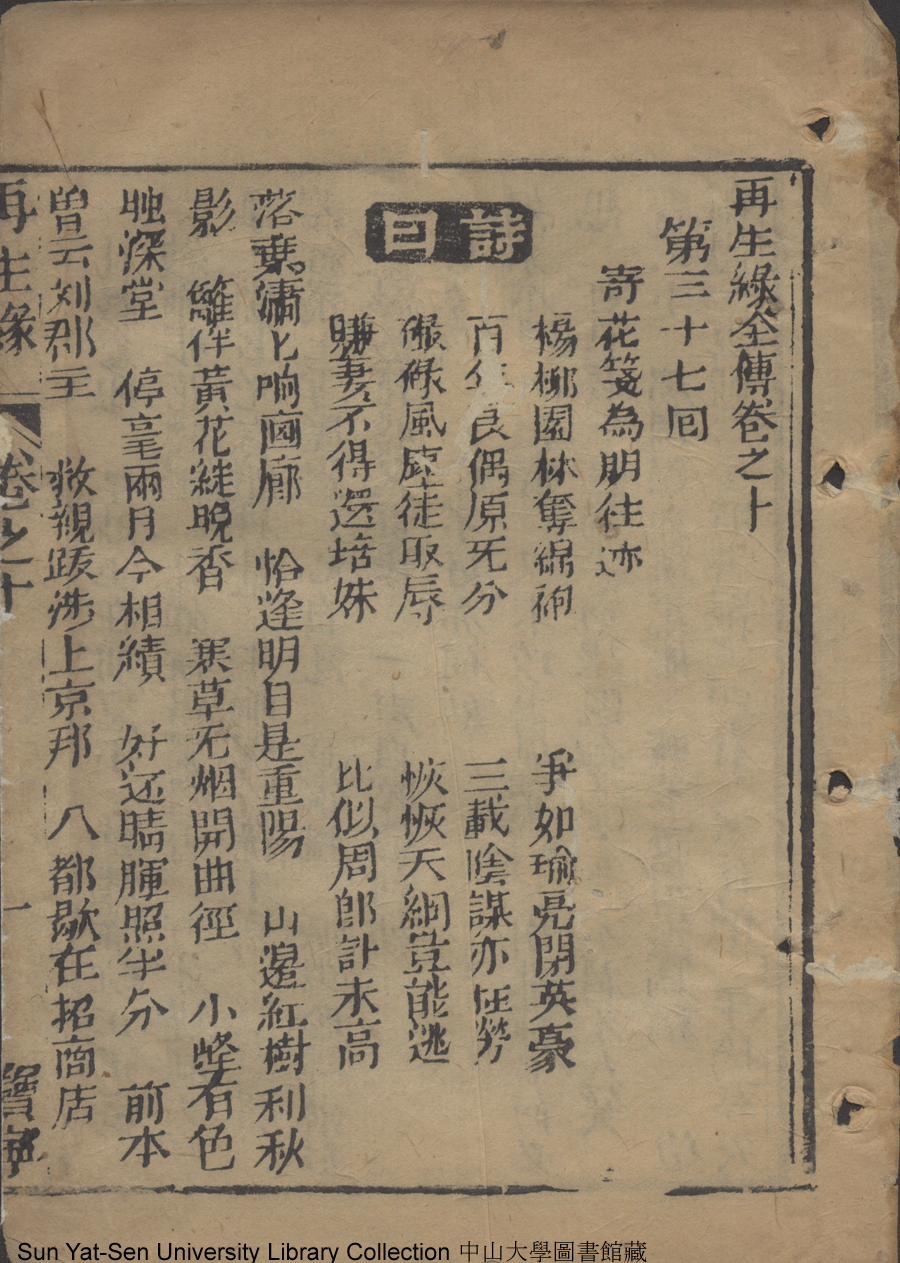 再生緣全傳卷之十
第三十七回
寄花箋為明往迹
詩曰
楊柳園林奪錦袍 爭如瑜亮閗英豪
百年良偶原无分 三載陰謀亦枉勞
碌碌風塵徒取辱 恢恢天綱豈能逃
賺妻不得還塔妹 比似周郎計未高
落葉瀟匕响廻廊 恰逢明日是重陽 山邊紅樹利秋
影 籬伴黃花綻晚香 寒草无烟開曲徑 小峰有色
映深堂 停毫兩月今相續 好还晴暉照半分 前本
曽云刘郡主 救親跋涉上京邦 八都歇在招商店
再生緣 卷之十 一 寳寧
Sun Yat-Sen University Library Collection 中山大學圖書館藏